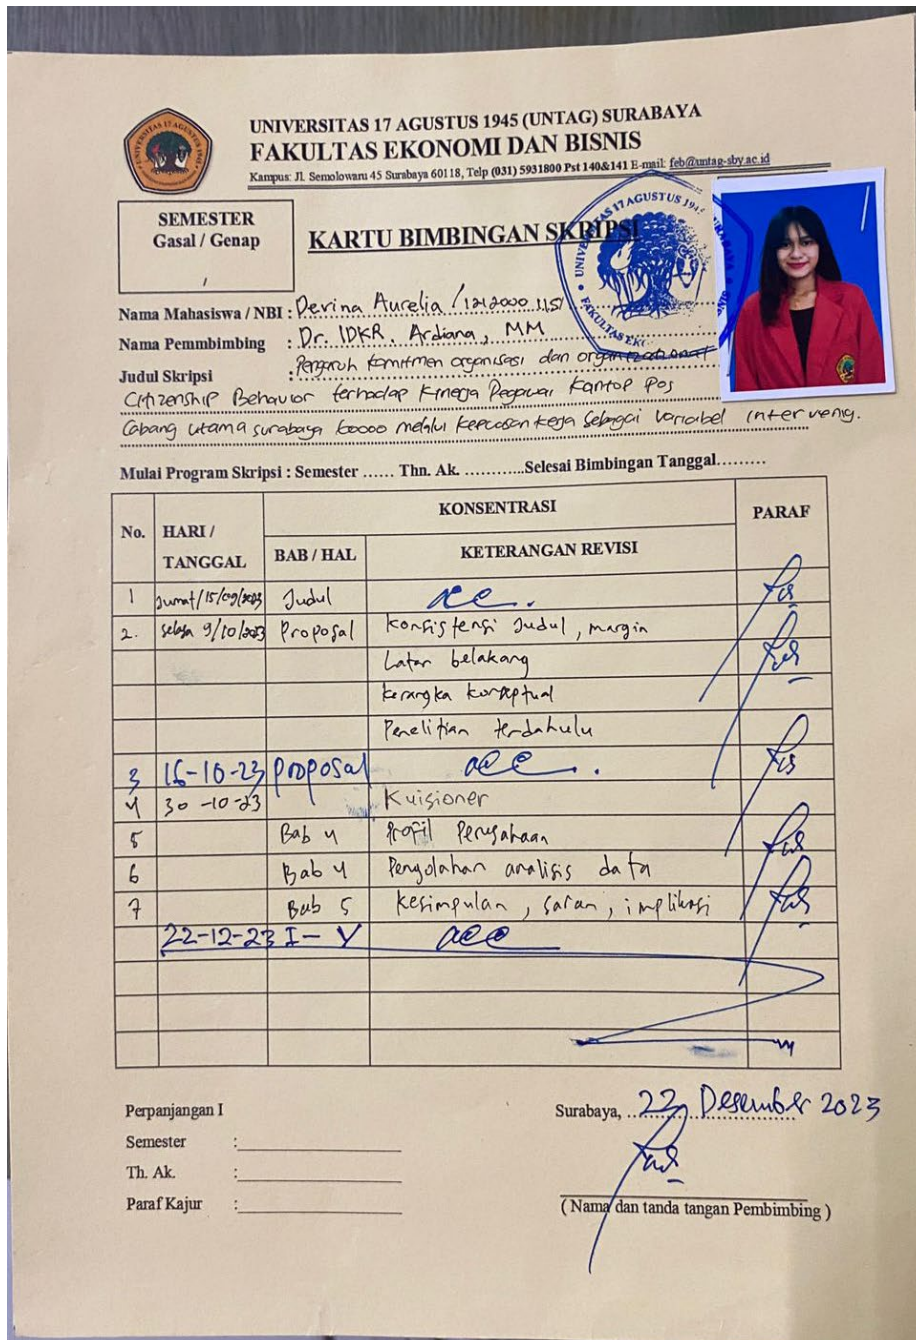 UNIVERSITAS 17 AGUSTUS 1945 (UNTAG) SURABAYA
FAKULTAS EKONOMI DAN BISNIS
Kampus: Jl. Semolowaru 45 Surabaya 60118, Telp (031) 5931800 Pst 140&141 E-mail: feb@untag-sby.ac.id
SEMESTER
Gasal / Genap
/
KARTU BIMBINGAN SKRIPSI
Nama Mahasiswa / NBI : Devina Aurelia /
Nama Pemmbimbing : Dr. IDKR. Ardiana, MM
Judul Skripsi : Pengaruh komitmen organisasi dan organizational
Citizenship Behavior terhadap Kinerja Pegawai Kantor Pos
Cabang utama surabaya 60000 melalui kepuasan kerja Sebagai Variabel intervenig.
Mulai Program Skripsi : Semester ...... Thn. Ak. ............Selesai Bimbingan Tanggal.........
No. HARI / TANGGAL KONSENTRASI PARAF
BAB / HAL KETERANGAN REVISI
1 Jumat/15/09/2023 Judul acc.
2. Selasa 9/10/2023 Proposal Konsistensi Judul, margin
Latar belakang
kerangka konseptual
Penelitian terdahulu
3 16-10-23 Proposal acc.
4 30-10-23 Kuisioner
5 Bab 4 Profil Perusahaan
6 Bab 4 Pengolahan analisis data
7 Bab 5 kesimpulan, saran, implikasi
22-12-23 I - V acc
Perpanjangan I
Semester :
Th. Ak. :
Paraf Kajur :
Surabaya, 22 Desember 2023
( Nama dan tanda tangan Pembimbing )